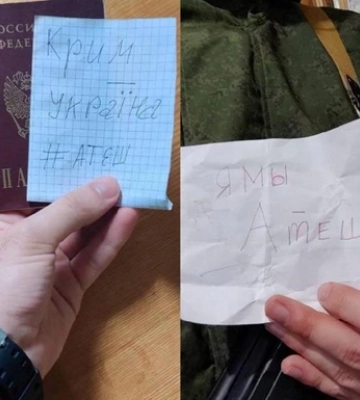 РОССИ
ФЕДЕР
ПА
Крим
Україна
#АТЕШ
Я МЫ
Атеш